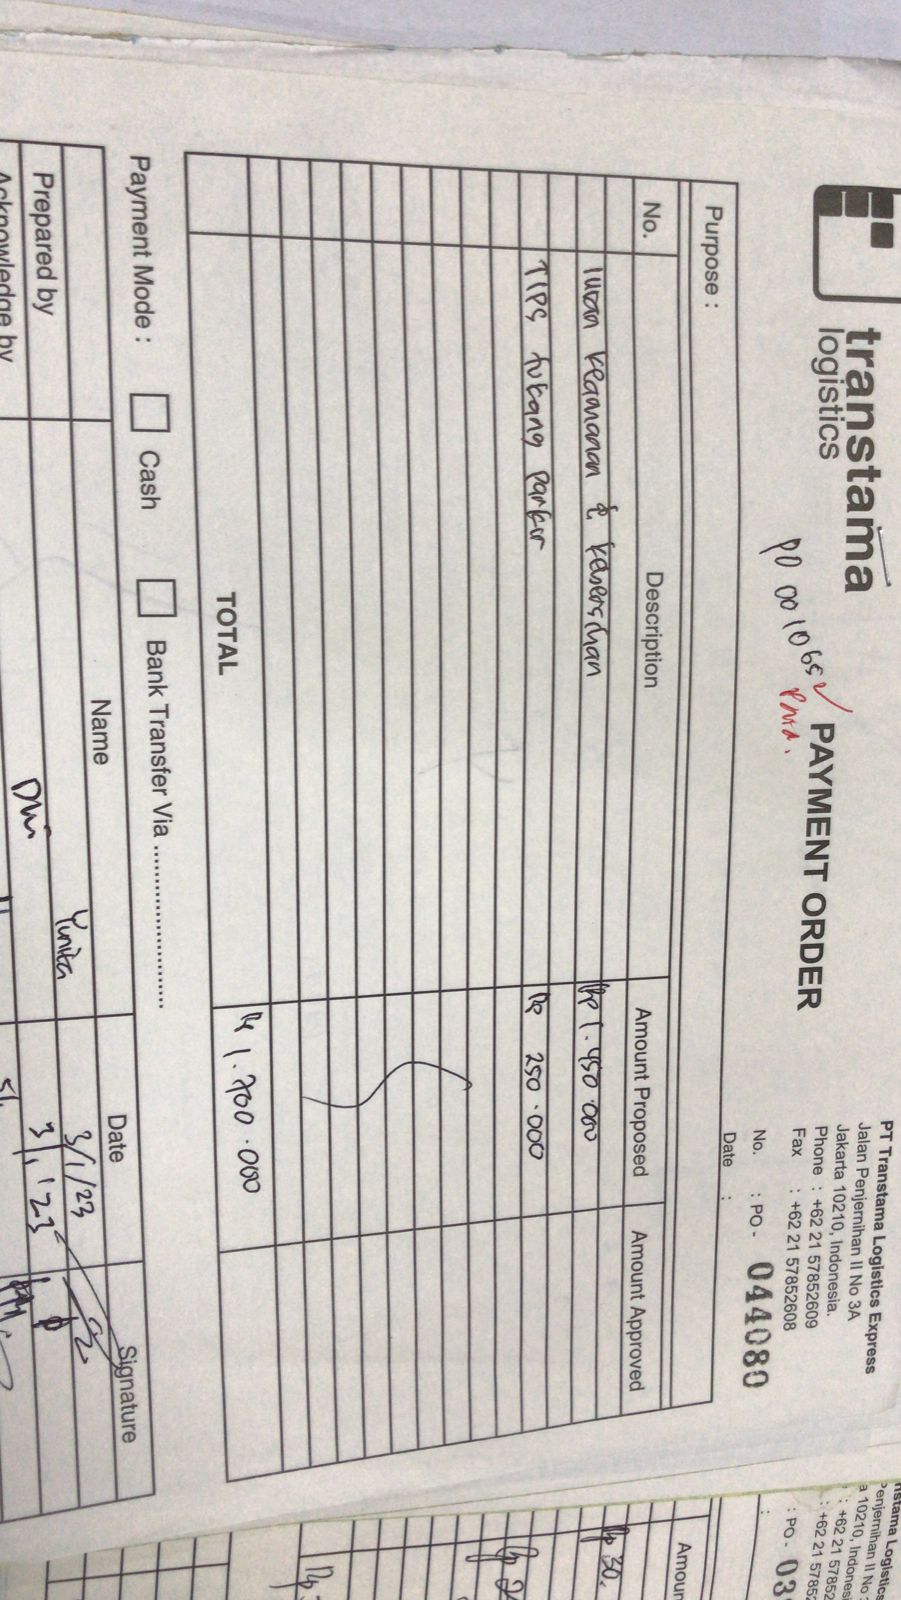 transtama
logistics
PT Transtama Logistics Express
Jalan Penjernihan II No 3A
Jakarta 10210, Indonesia.
Phone : +62 21 57852609
Fax : +62 21 57852608
PO 001065
PAYMENT ORDER
No. : PO - 044080
Date :
Purpose :
No. Description Amount Proposed Amount Approved
Iuran Keamanan & Kebersihan Rp 1.450.000
TIPS tukang parkir Rp 250.000
TOTAL Rp 1.700.000
Payment Mode : Cash Bank Transfer Via ........................
Name Date Signature
Prepared by Yunita 3/1/23
Acknowledge by Dwi 3/1/23
nstama Logistics
Penjernihan II No
a 10210, Indonesi
: +62 21 5785
: +62 21 5785
: PO - 03
:
Amoun
Rp 30.